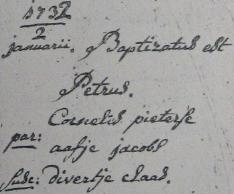 1732
2
januarii. Baptizatus est
Petrus.
Cornelis pieterse
par: aafje jacobs
susc: divertje claas.